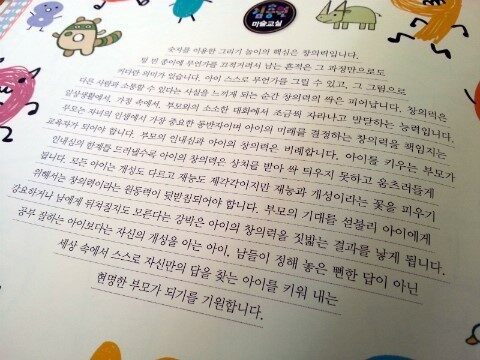 김충원
미술교실
숫자를 이용한 그리기 놀이의 핵심은 창의력입니다.
텅 빈 종이에 무언가를 끄적거려서 남는 흔적은 그 과정만으로도
커다란 의미가 있습니다. 아이 스스로 무언가를 그릴 수 있고, 그 그림으로
다른 사람과 소통할 수 있다는 사실을 느끼게 되는 순간 창의력의 싹은 피어납니다. 창의력은
일상생활에서, 가정 속에서, 부모와의 소소한 대화에서 조금씩 자라나고 만발하는 능력입니다.
부모는 자녀의 인생에서 가장 중요한 동반자이며 아이의 미래를 결정하는 창의력을 책임지는
교육자가 되어야 합니다. 부모의 인내심과 아이의 창의력은 비례합니다. 아이를 키우는 부모가
인내심의 한계를 드러낼수록 아이의 창의력은 상처를 받아 싹 틔우지 못하고 움츠러들게
됩니다. 모든 아이는 개성도 다르고 재능도 제각각이지만 재능과 개성이라는 꽃을 피우기
위해서는 창의력이라는 원동력이 뒷받침되어야 합니다. 부모의 기대를 섣불리 아이에게
강요하거나 남에게 뒤처질지도 모른다는 강박은 아이의 창의력을 짓밟는 결과를 낳게 됩니다.
공부 잘하는 아이보다는 자신의 개성을 아는 아이, 남들이 정해 놓은 뻔한 답이 아닌
세상 속에서 스스로 자신만의 답을 찾는 아이를 키워 내는
현명한 부모가 되기를 기원합니다.